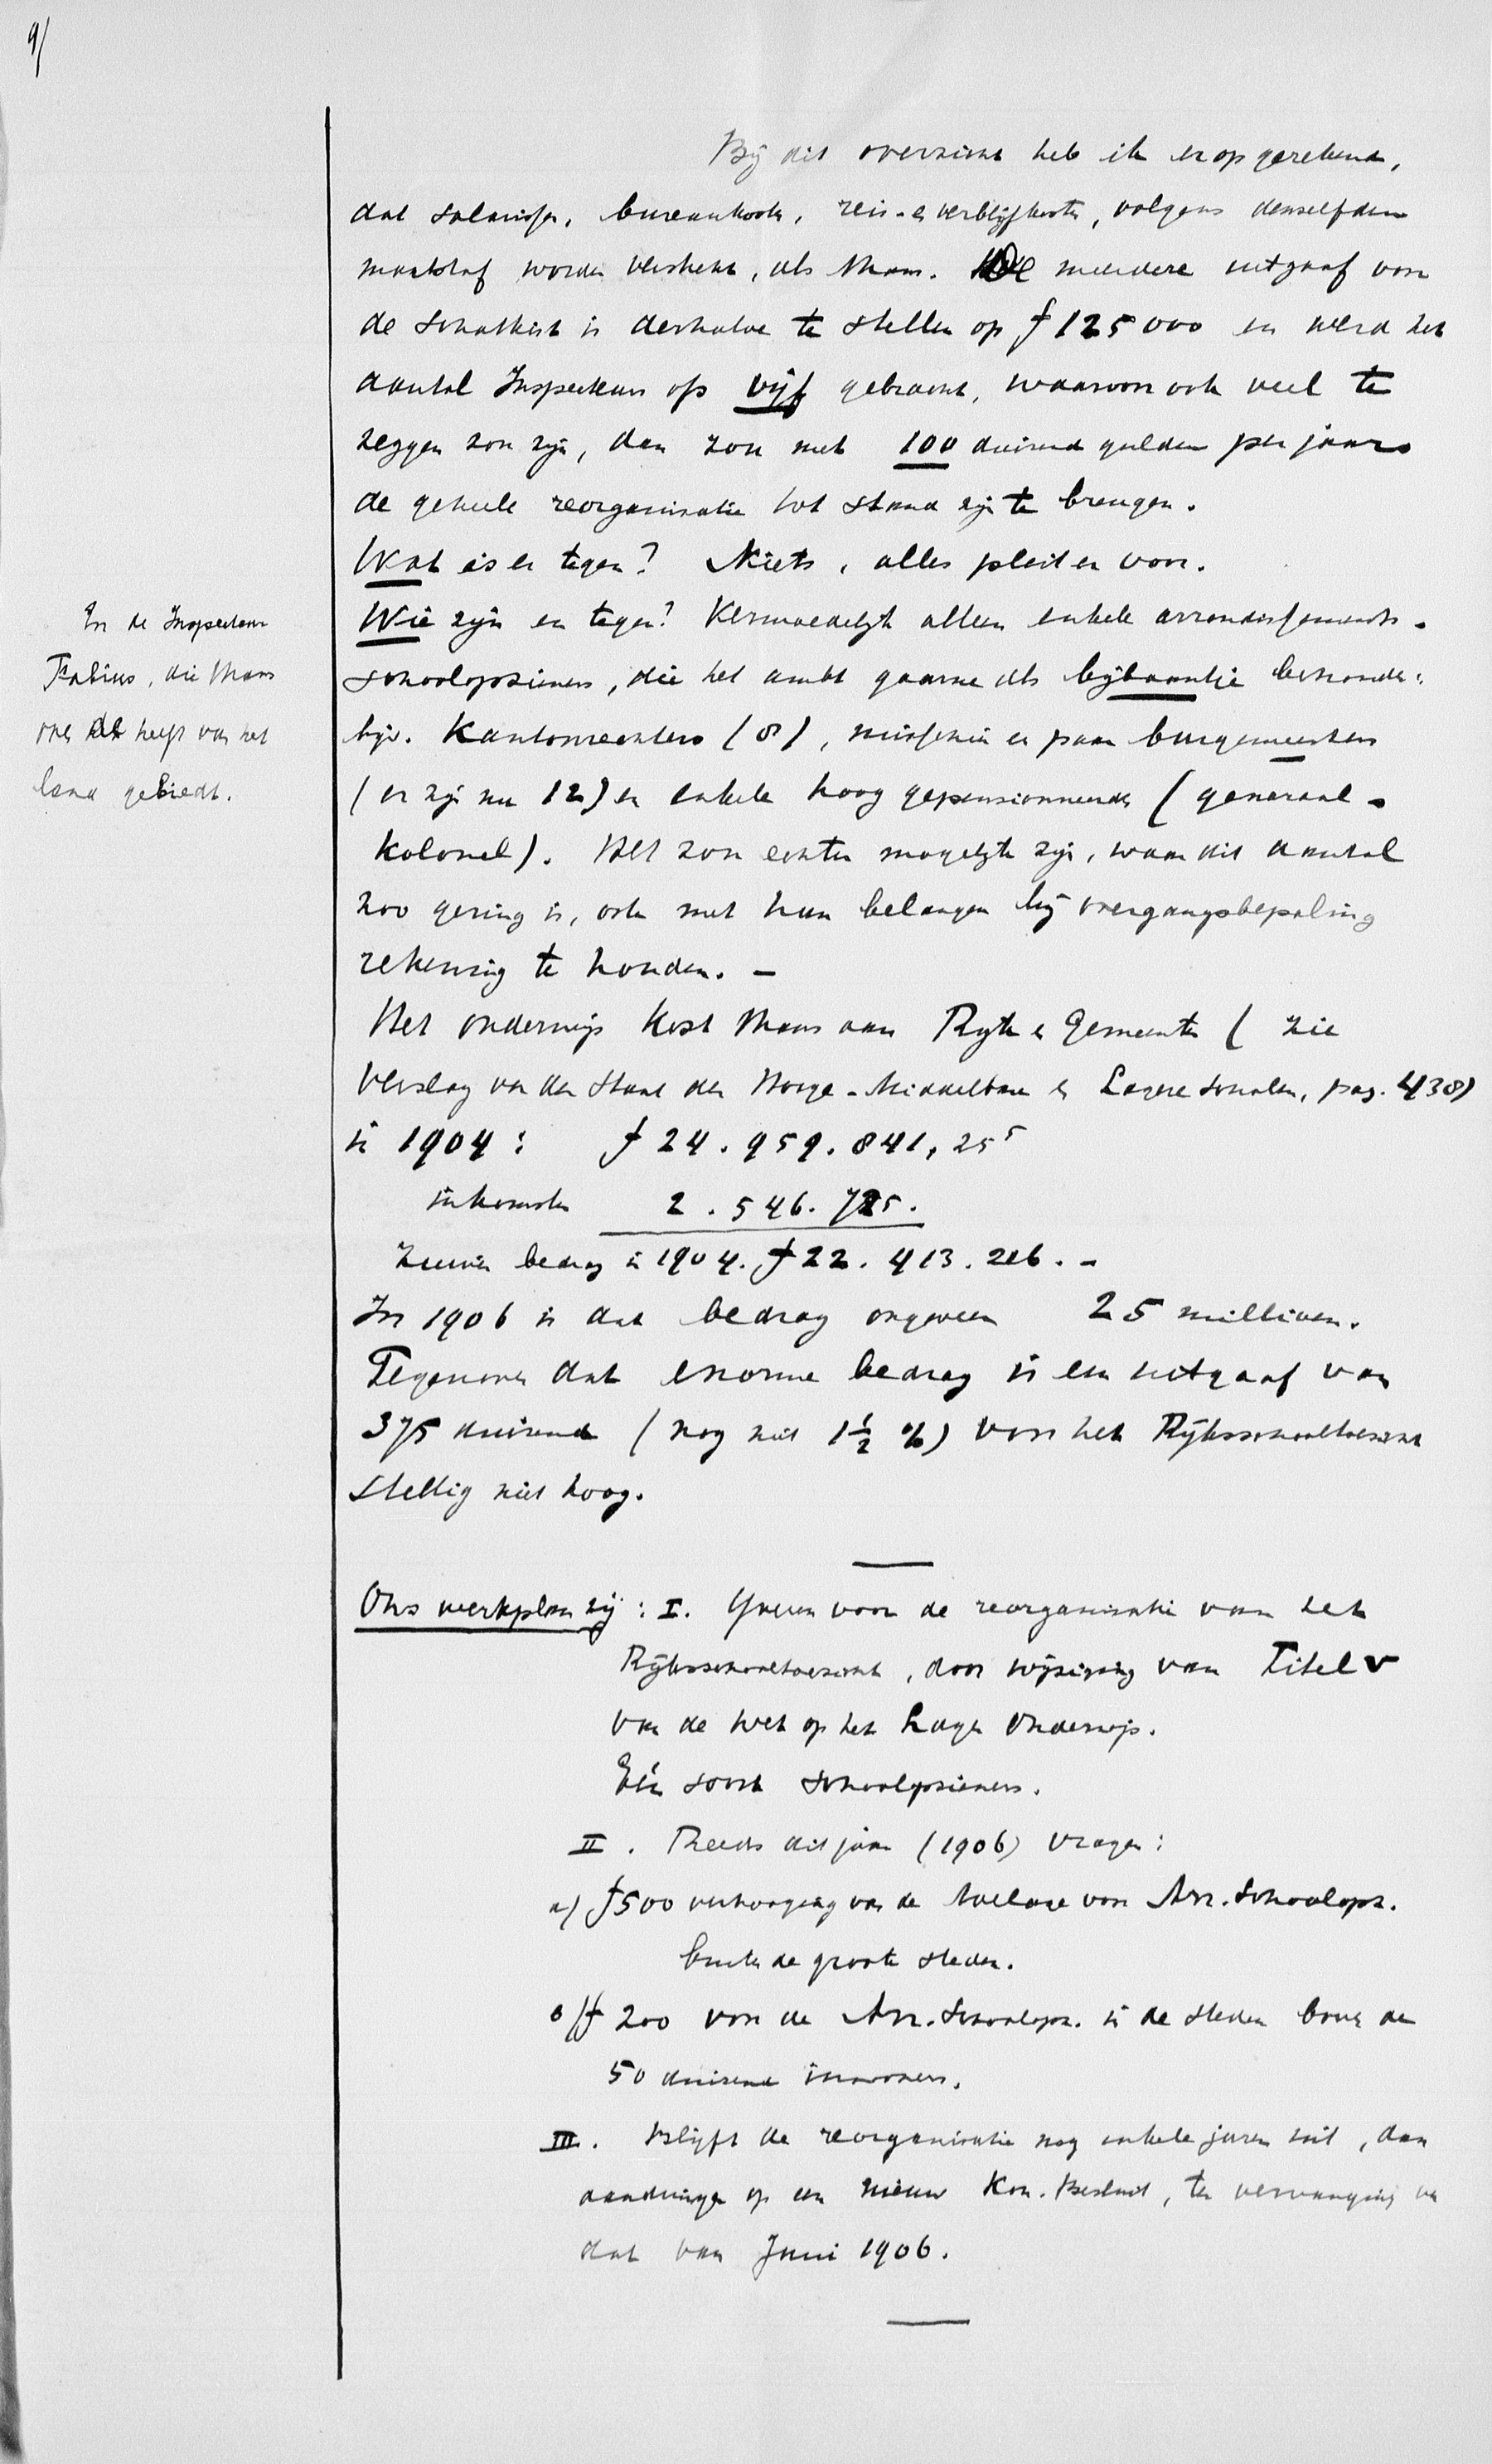 9/
Bij dit overzicht heb ik er op gerekend,
dat salarissen, bureaukosten, reis- en verblijfkosten, volgens denzelfden
maatstaf worden verstrekt, als thans. De meerdere uitgaaf voor
de schatkist is derhalve te stellen op f 125 000 en werd het
aantal Inspecteurs op vijf gebracht, waarvoor ook veel te
zeggen zou zijn, dan zou met 100 duizend gulden per jaar
de geheele reorganisatie tot stand zijn te brengen.
Wat is er tegen? Niets, alles pleit er voor.
Wie zijn er tegen? Vermoedelijk alleen enkele arrondissements-
schoolopzieners, die het ambt gaarne als bijbaantje beschouden:
bijv. Kantonrechters (8), misschien en paar burgemeesters
(er zijn nu 12) en enkele hoog gepensionneerden (generaal-
kolonel). Het zou echter mogelijk zijn, waar dit aantal
zoo gering is, ook met hun belangen bij overgangsbepaling
rekening te houden. –
In de Inspecteur
Fabius, die thans
over de helft van het
land gebiedt.
Het onderwijs kost thans aan Rijk en Gemeenten (zie
Verslag van den Staat der Hooge- Middelbare en Lagere Scholen, pag. 438)
in 1904: f 24.959.841,25⁵
inkomsten 2.546.725.
Zuiver bedrag in 1904. f 22.413.216.-
In 1906 is dat bedrag ongeveer 25 millioen.
Tegenover dat enorme bedrag is een uitgaaf van
375 duizend (nog niet 1½ %) voor het Rijksschooltoezicht
stellig niet hoog.
Ons werkplan zij: I. IJveren voor de reorganisatie van het
Rijksschooltoezicht, door wijziging van Titel V
van de Wet op het Lager Onderwijs.
Eén soort Schoolopzieners.
II. Reeds dit jaar (1906) vragen:
a) f 500 verhooging van de toelage voor Arr. Schoolopz.
buiten de groote steden.
b) f 200 voor de Arr. Schoolopz. in de steden boven de
50 duizend inwoners.
III. Blijft de reorganisatie nog enkele jaren uit, dan
aandringen op een nieuw Kon. Besluit, ter vervanging van
dat van Juni 1906.